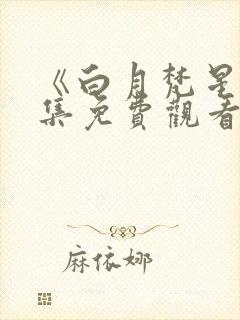 《白月梵星
集免費觀看
麻依娜